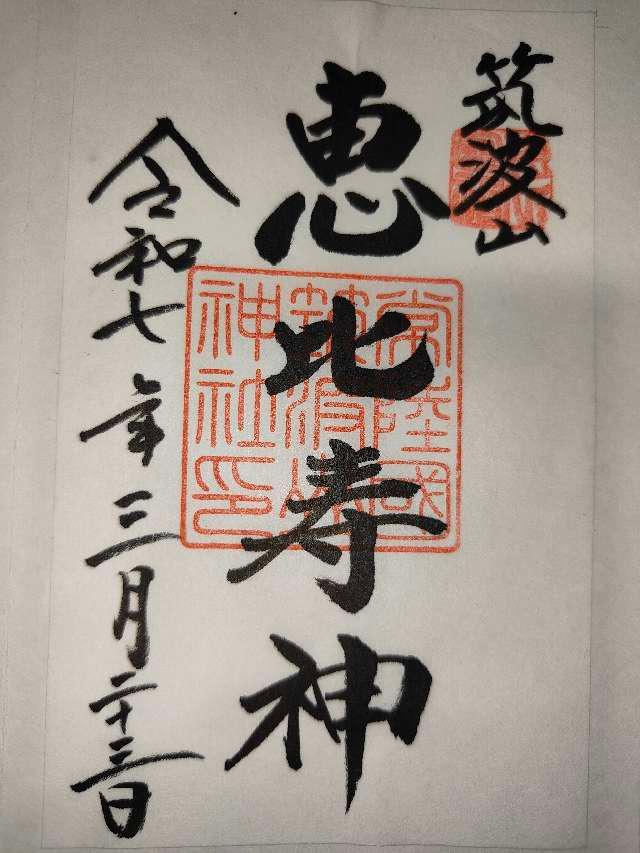 筑波山
恵比寿神
常陸國
筑波山
神社印
令和七年三月二十三日